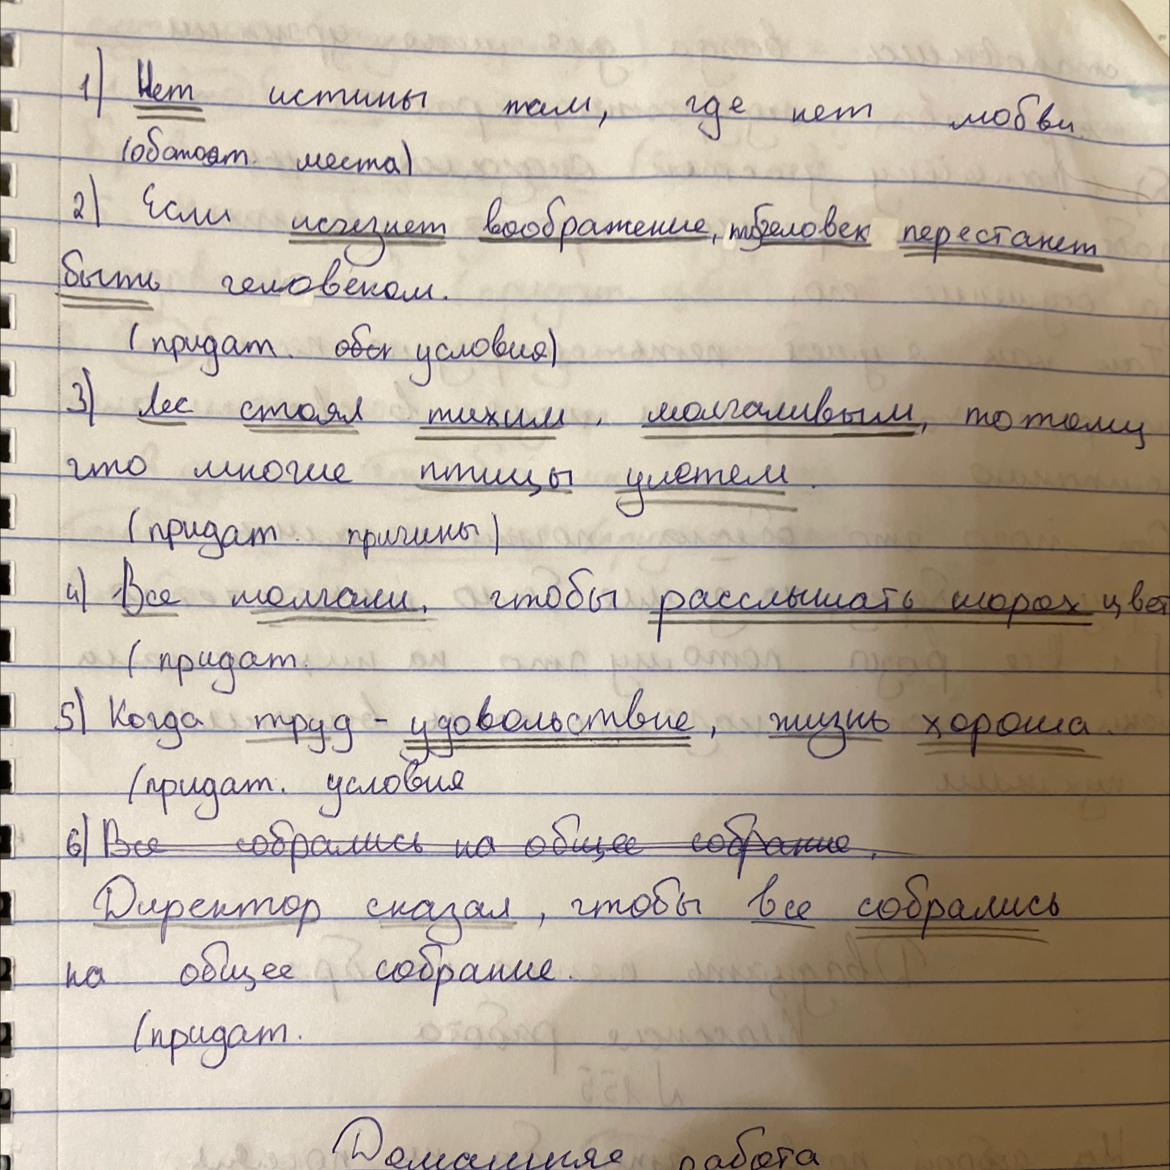 1) Нет истины там, где нет любви
(обстоят. места)
2) Если исчезнет воображение, человек перестанет
быть человеком.
(придат. условия)
3) Лес стоял тихим, молчаливым, потому
что многие птицы улетели.
(придат. причины)
4) Все молчали, чтобы расслышать шорох цвет
(придат.
5) Когда труд - удовольствие, жизнь хороша.
(придат. условия
6) Все собрались на общее собрание.
Директор сказал, чтобы все собрались
на общее собрание.
(придат.
Домашняя работа